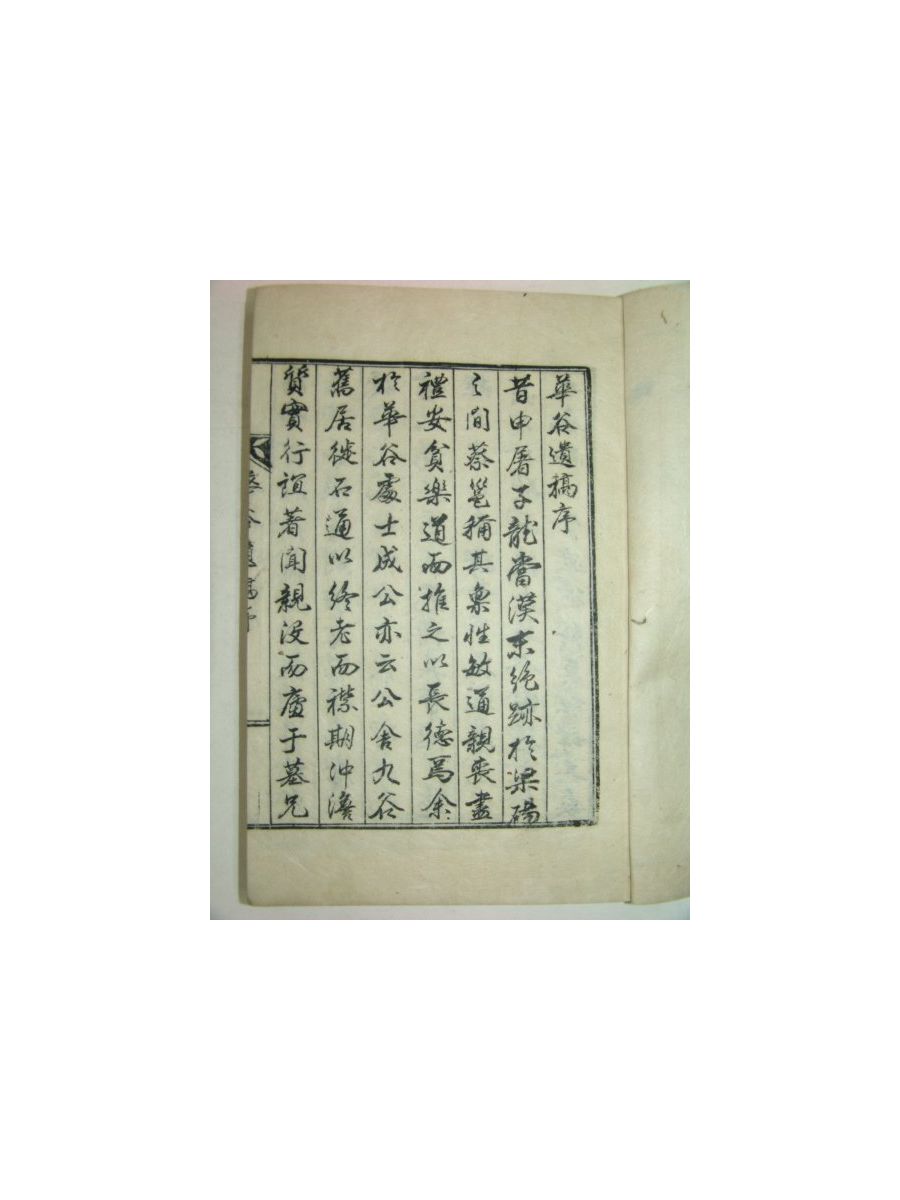 華谷遺稿序
昔申屠子龍當漢末絶跡於梁碭
之間蔡邕稱其稟性敏通親喪盡
禮安貧樂道而推之以長德焉余
於華谷處士成公亦云公舍九谷
舊居徙石逋以終老而襟期冲澹
質實行誼著聞親没而廬于墓兄
華谷遺稿序